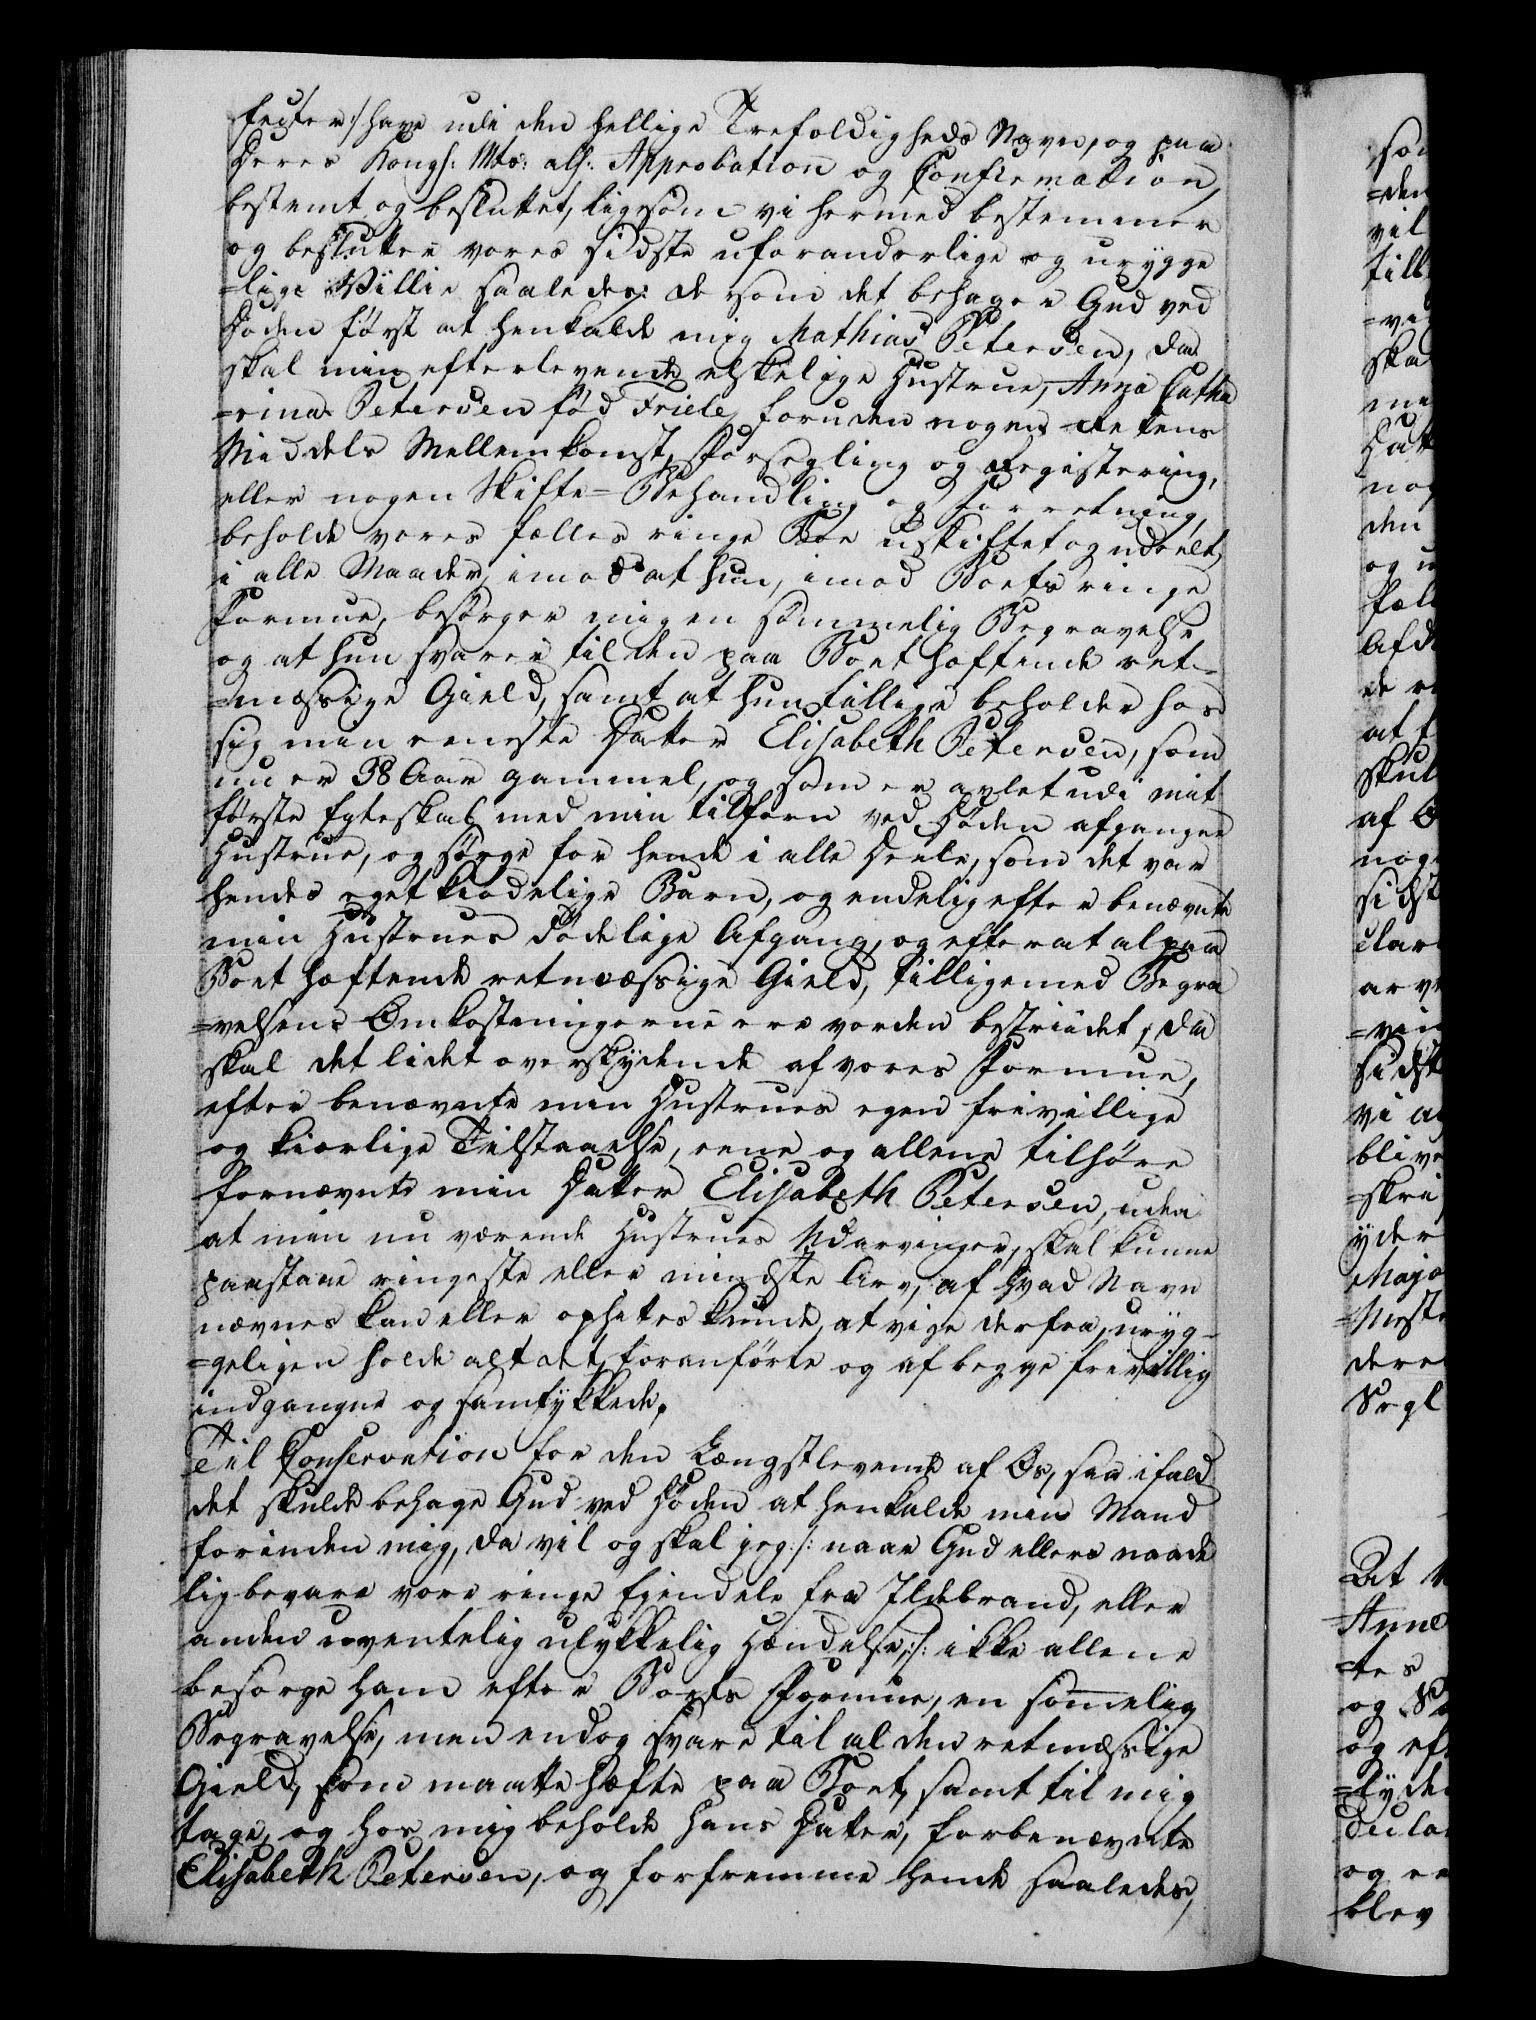 fecter :/ have udi den hellige Trefoldigheds Navn, og paa
Deres Kongl: Mts: all: Approbation og Confirmation,
bestemt og besluttet, ligesom vi hermed bestemmer
og beslutter vores sidste uforanderlige og urygge
=lige Villie saaledes: de som det behager Gud ved
Døden først at henkalde mig Mathias Petersen, da
skal min efterlevende elskelige Hustrue, Anna Catha
=rina Petersen fød Friele, foruden nogen Rettens
Middels Mellemkomst, Forsegling og Registering,
eller nogen Skifte-Behandling og Forretning,
beholde vores fælles ringe Boe uskiftet og udeelt,
i alle Maader, imod at hun, imod Boets ringe
Formue, besørger mig en sømmelig Begravelse
og at hun svarer til den paa Boet hæftende ret-
=mæssige Gield, samt at hun tillige beholder hos
sig min eeneste Datter Elisabeth Petersen, som
nu er 38 Aar gammel, og som er avlet udi mit
første Egteskab med min tilforn ved Døden afgangne
Hustrue, og sørge for hende i alle Deele, som det var
hendes eget kiødelige Barn, og endelig efter benævnte
min Hustrues dødelige Afgang, og efter at al paa
Boet hæftende retmæssige Gield, tilligemed Begra
=velsens Omkostningerne ere vorden bestridet, da
skal det lidet overskydende af vores Formue,
efter benævnte min Hustrues egen frivillige
og kiærlige Tilstaaelse, eene og allene tilhøre
fornævnte min Datter Elisabeth Petersen, uden
at min nu værende Hustrues Udarvinger, skal kunne
paastaae ringeste eller mindste Arv, af hvad Navn
nævnes kan eller ophittes kunde, at vige derfra, uryg-
=geligen holde alt det foranførte og af begge frivillig
indgangne og samtykkede.
Til Conservation for den Længstlevende af Os, saa ifald
det skulde behage Gud ved Døden at henkalde min Mand
forinden mig, da vil og skal jeg /: naar Gud ellers naade
lig bevare vore ringe Ejendele fra Ildebrand, eller
anden uventelig ulykkelig Hændelse, :/ ikke allene
besørge ham efter Boets Formue, en sømmelig
Begravelse, men endog svare til al den retmæssige
Gield, som maatte hæfte paa Boet, samt til mig
tage, og hos mig beholde hans Datter, forbenævnte
Elisabeth Petersen, og forfremme hende saaledes,